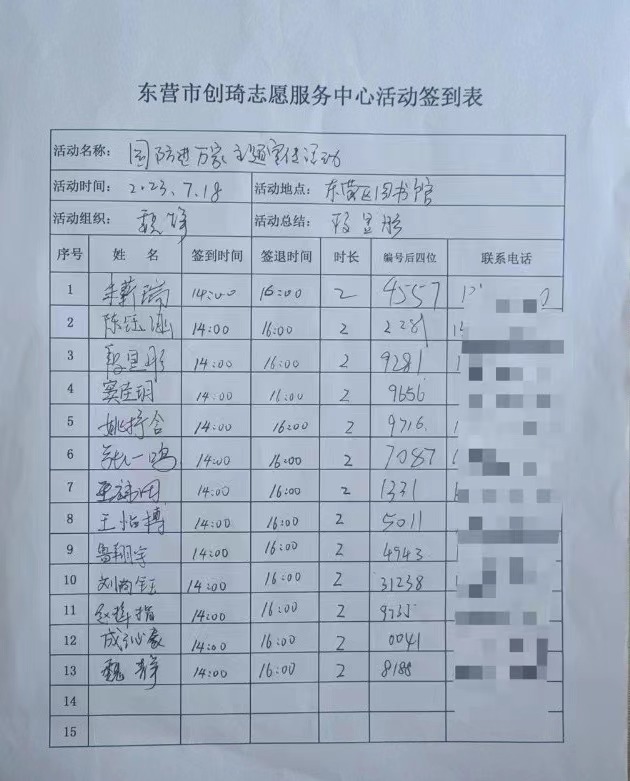 东营市创琦志愿服务中心活动签到表
活动名称： 国防进万家主题宣传活动
活动时间： 2023.7.18 活动地点： 东营区图书馆
活动组织： 魏静 活动总结： 段星彤
序号 姓 名 签到时间 签退时间 时长 编号后四位 联系电话
1 朱薪瑞 14:00 16:00 2 4557
2 陈钰涵 14:00 16:00 2 2281
3 段星彤 14:00 16:00 2 9281
4 窦佳玥 14:00 16:00 2 9656
5 姚抒含 14:00 16:00 2 9716
6 张一鸣 14:00 16:00 2 7087
7 14:00 16:00 2 1331
8 王怡博 14:00 16:00 2 5011
9 鲁翔宇 14:00 16:00 2 4943
10 刘尚钰 14:00 16:00 2 31238
11 14:00 16:00 2
12 成泓豪 14:00 16:00 2 0041
13 魏静 14:00 16:00 2 8188
14
15